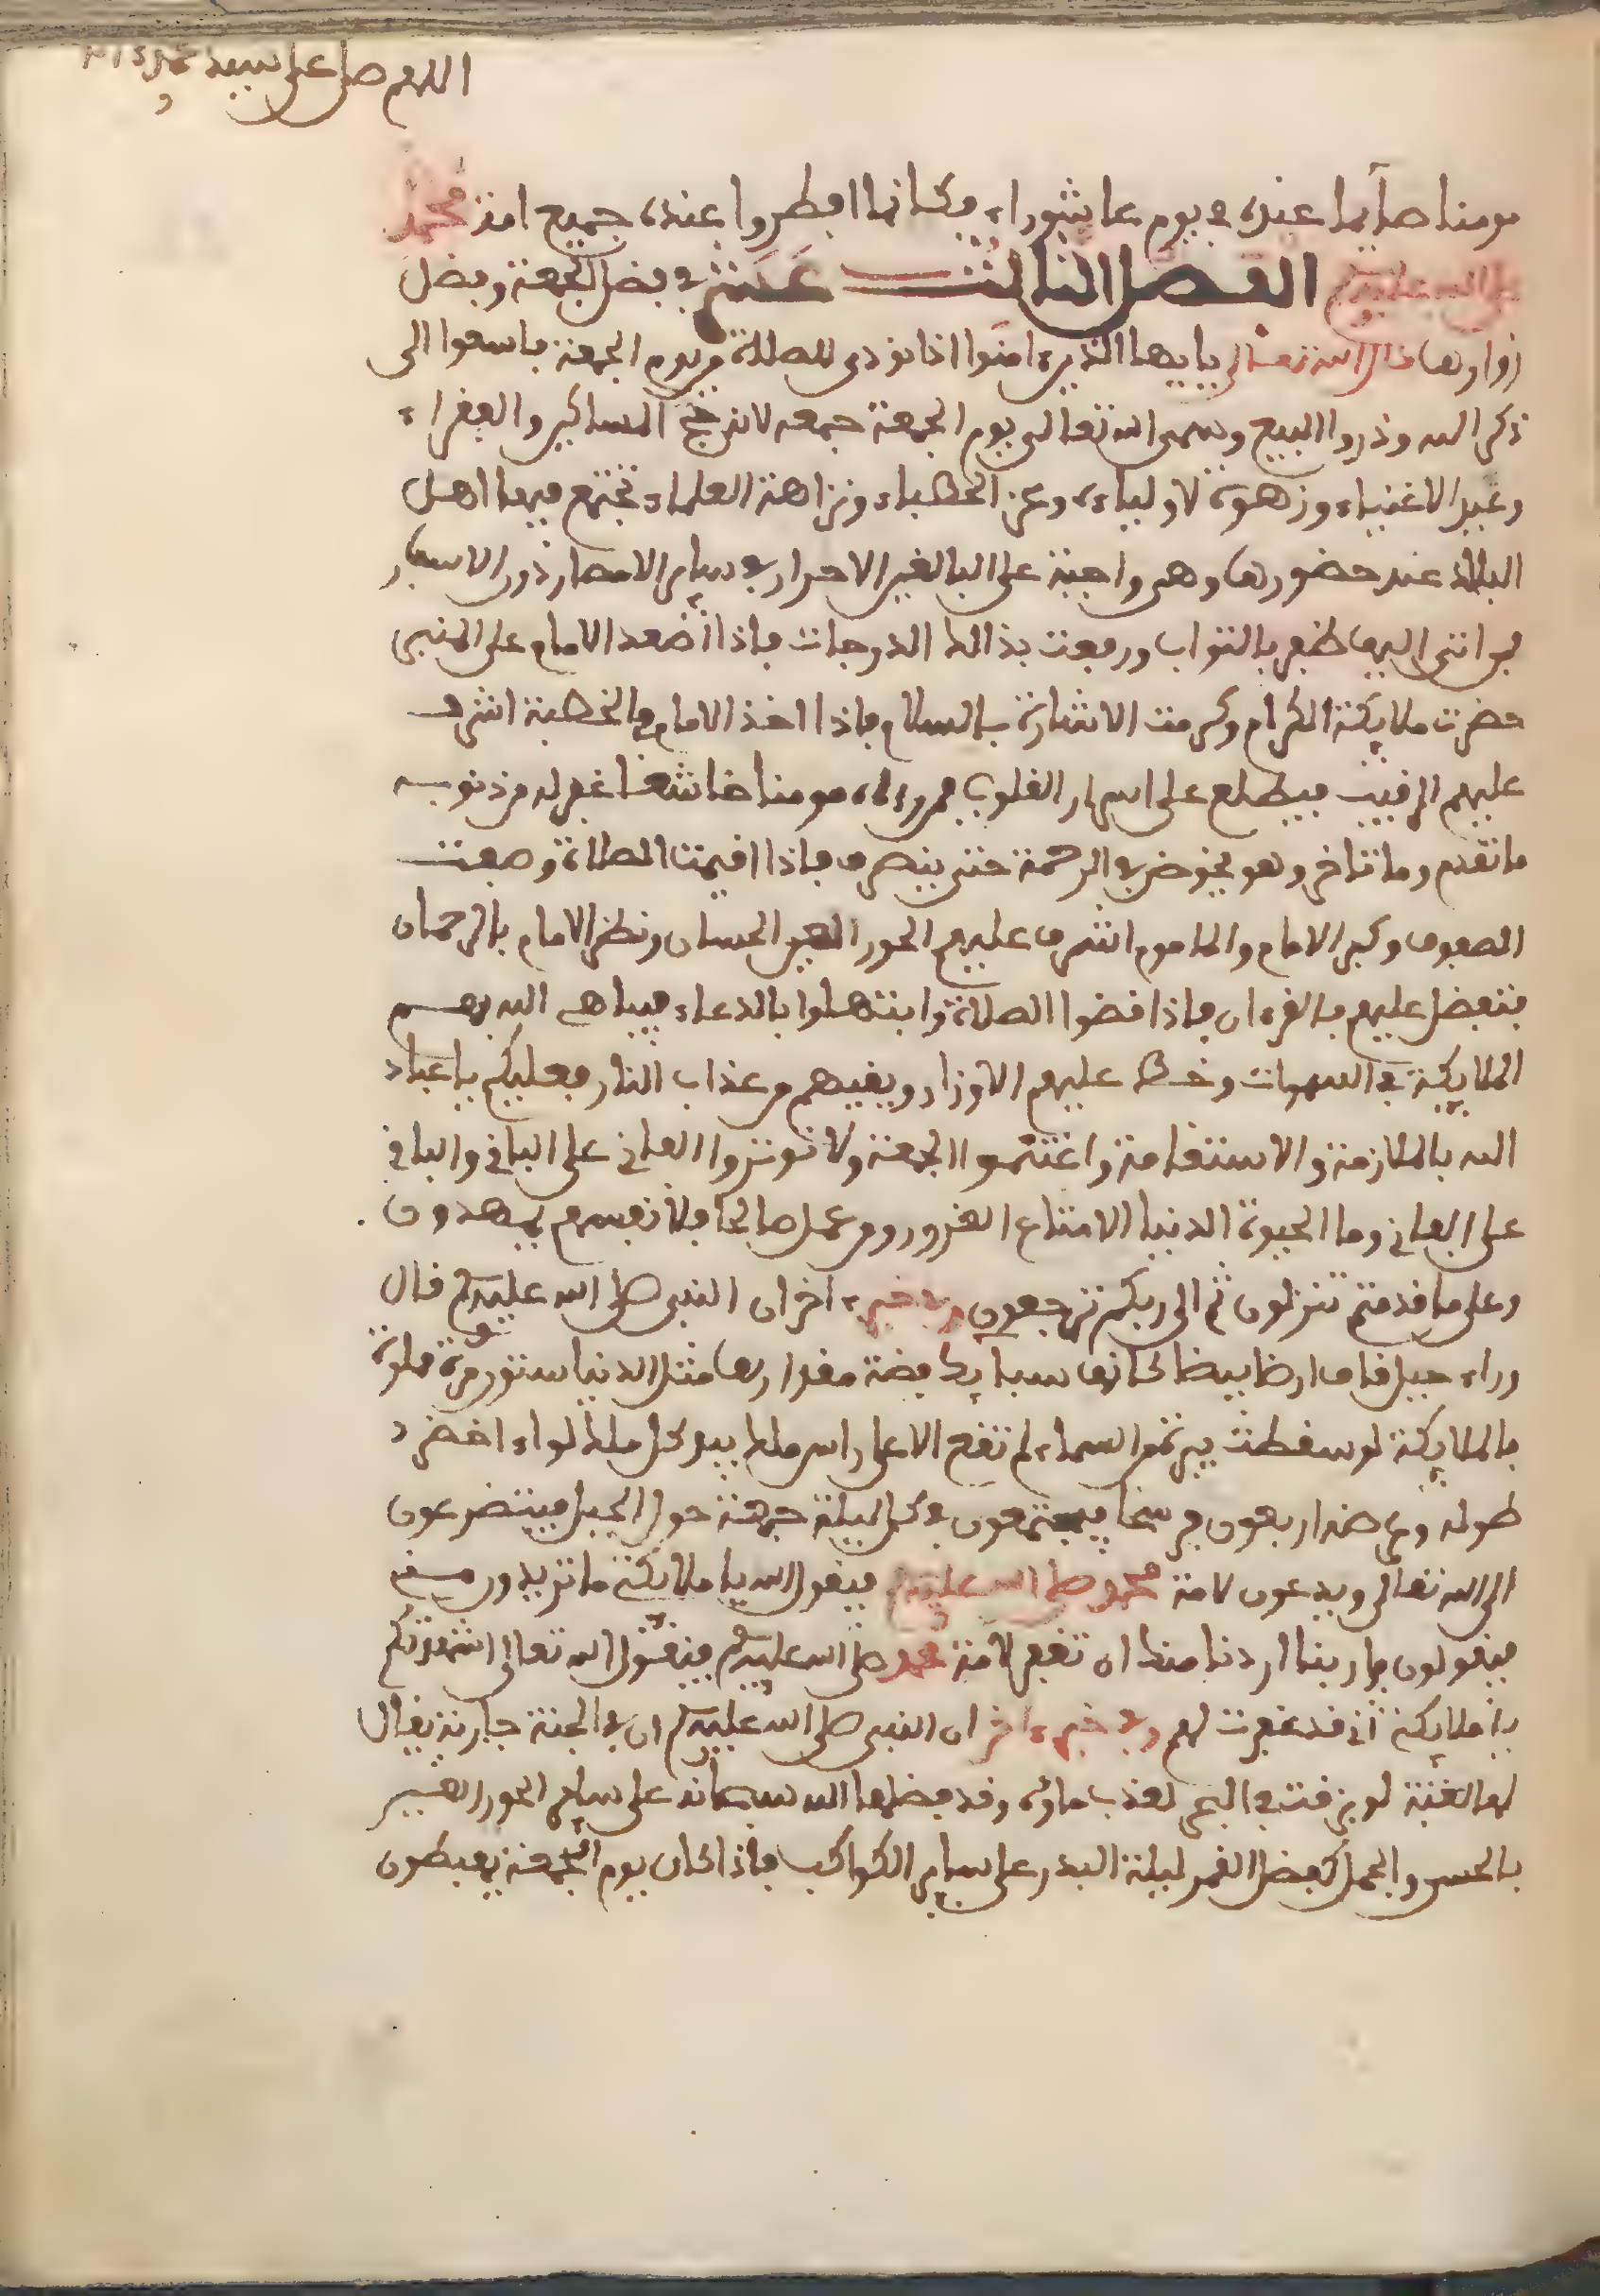 اللهم صل على سيدنا محمد و
مومنا صآيما عنده في يوم عاشوراء فكانما افطروا عنده جميع امة محمد
صلى الله عليه وسلم الفصل الثالث عشر في فضل الجمعة وفضل
زوارها قال الله تعالى يايها الذين ءامنوا اذا نودي للصلاة من يوم الجمعة فاسعوا الى
ذكر الله وذروا البيع وسمى الله تعالى يوم الجمعة جمعه لانه حج المساكين والفقراء
وعيد الاغنياء وزهوة لاولياءه وعز الخطباء ونزاهة العلماء تجتمع فيها اهل
البلاد عند حضورها وهي واجبة على البالغين الاحرار في ساير الامصار دون الاسفار
فمن اتى اليها ظفر بالثواب ورفعت بذالك الدرجات فاذا صعد الامام على المنبر
حضرت ملايكة الكرام وكرمت الاشارة بالسلام فاذا اخذ الامام في الخطبة اشرف
عليهم الرقيب فيطلع على اسرار القلوب فمن رءاه مومنا خاشعا غفر له من ذنوبه
ما تقدم وما تاخر وهو يخوض في الرحمة حتى ينصرف فاذا اقيمت الصلاة وصفت
الصفوف وكبر الامام والماموم اشرف عليهم الحور العين الحسان ونظر الامام بالرحمان
فتفضل عليهم بالغفران فاذا قضوا الصلاة وابتهلوا بالدعاء فيباهي الله بهم
الملايكة في السموات وحط عليهم الاوزار ويقيهم من عذاب النار فعليكم يا عباد
الله بالملازمة والاستقامة واغتنموا الجمعة ولا توثروا الفاني على الباقي والباقي
على الفاني وما الحيوة الدنيا الا متاع الغرور ومن عمل صالحا فلانفسهم يمهدون
وعلى ما قدمتم تنزلون ثم الى ربكم ترجعون وفي خبر ءاخر ان النبي صلى الله عليه وسلم قال
وراء جبل قاف ارضا بيضا كانها سبايك فضة مقدارها مثل الدنيا ستون مرة مملوة
بالملايكة لو سقطت ابرة من السماء لم تقع الا على راس ملك بيد كل ملك لواء اخضر
طوله وعرضه اربعون فرسخا فيجتمعون في كل ليلة جمعة حول الجبل فيتضرعون
الى الله تعالى ويدعون لامة محمد صلى الله عليه وسلم فيقول الله يا ملايكتي ما تريدون مني
فيقولون يا ربنا اردنا منك ان تغفر لامة محمد صلى الله عليه وسلم فيقول الله تعالى اشهدتكم
يا ملايكتي اني قد غفرت لهم وفي خبر ءاخر ان النبي صلى الله عليه وسلم ان في الجنة جارية يقال
لها لعبة لو بزقت في البحر لعذب ماؤه وقد فضلها الله سبحانه على ساير الحور العين
بالحسن والجمال كفضل القمر ليلة البدر على ساير الكواكب فاذا كان يوم الجمعة يهبطون